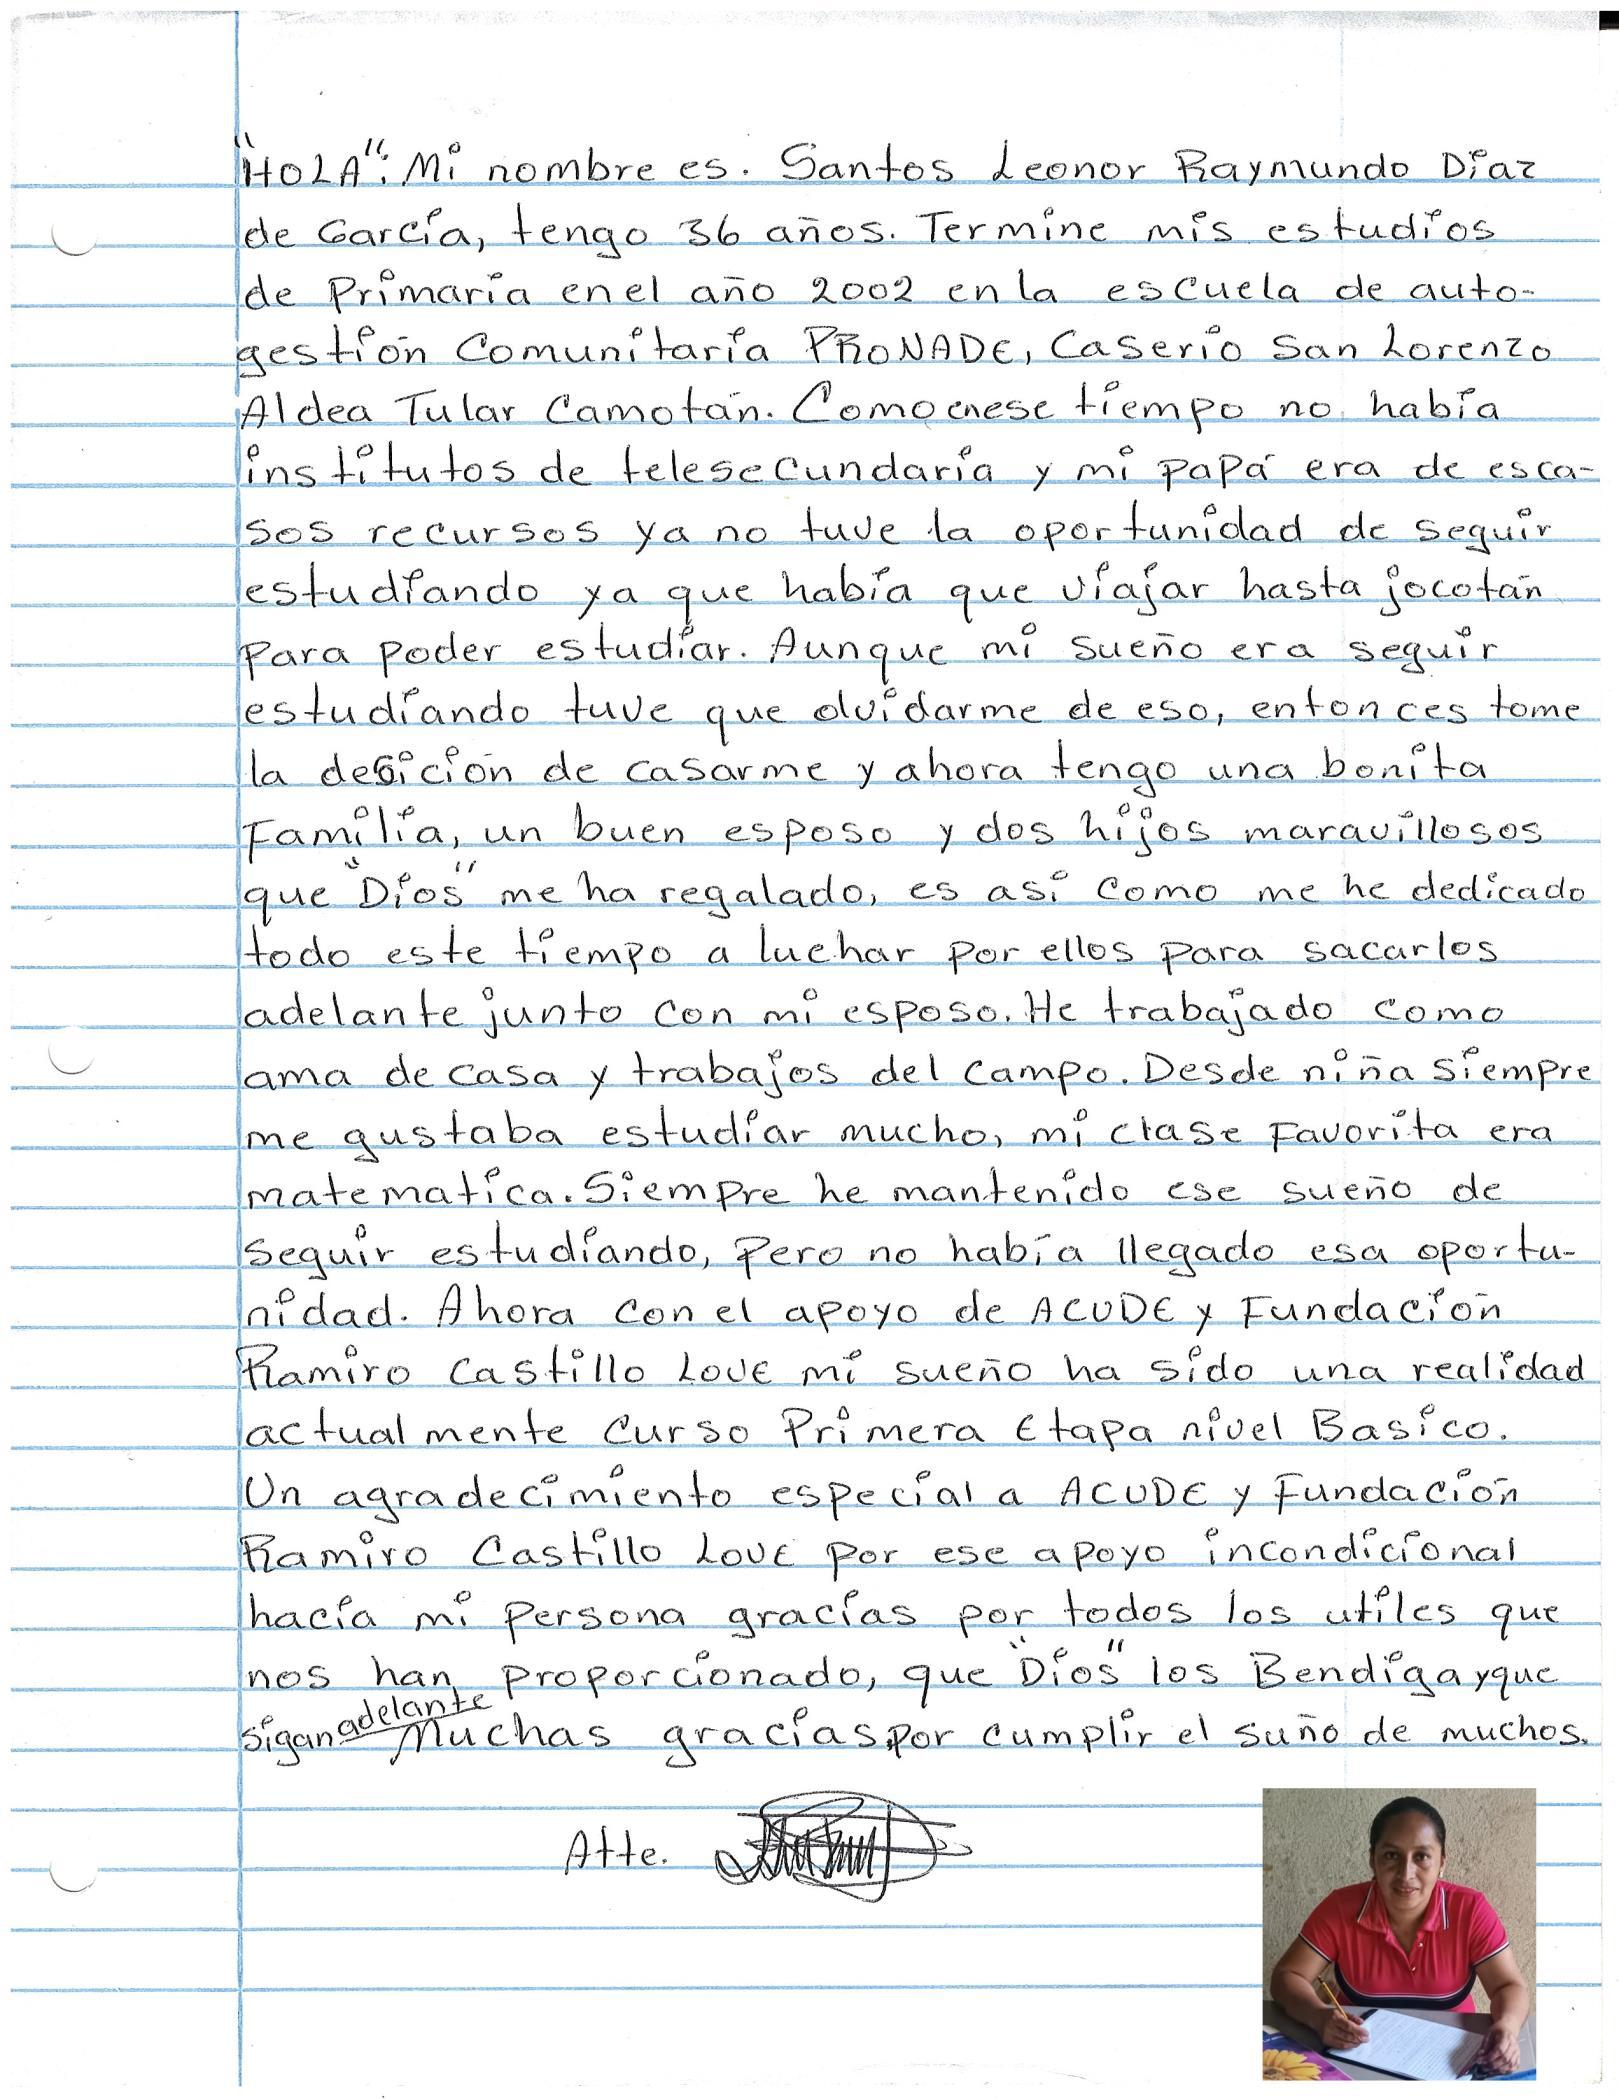 "HOLA": Mi nombre es. Santos Leonor Raymundo Díaz
de García, tengo 36 años. Termine mis estudios
de Primaria en el año 2002 en la escuela de auto-
gestión Comunitaria PRONADE, Caserio San Lorenzo
Aldea Tular Camotán. Como en ese tiempo no había
institutos de telesecundaria y mi papá era de esca-
sos recursos ya no tuve la oportunidad de seguir
estudiando ya que había que viajar hasta jocotán
para poder estudiar. Aunque mi sueño era seguir
estudiando tuve que olvidarme de eso, entonces tome
la desición de casarme y ahora tengo una bonita
Familia, un buen esposo y dos hijos maravillosos
que "Dios" me ha regalado, es así como me he dedicado
todo este tiempo a luchar por ellos para sacarlos
adelante junto con mi esposo. He trabajado como
ama de casa y trabajos del campo. Desde niña siempre
me gustaba estudiar mucho, mi clase Favorita era
matematica. Siempre he mantenido ese sueño de
seguir estudiando, pero no había llegado esa oportu-
nidad. Ahora con el apoyo de ACUDE y Fundación
Ramiro Castillo Love mi sueño ha sido una realidad
actualmente curso Primera Etapa nivel Basico.
Un agradecimiento especial a ACUDE y Fundación
Ramiro Castillo Love por ese apoyo incondicional
hacia mi persona gracias por todos los utiles que
nos han proporcionado, que "Dios" los Bendiga y que
sigan adelante Muchas gracias por cumplir el suño de muchos.
Atte.